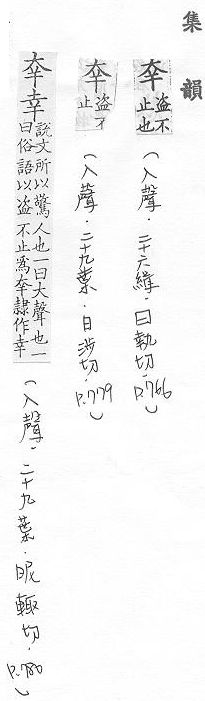 集韻
㚔 盜不止也 (入聲．二十六緝．日執切．P.766)
㚔 盜不止 (入聲．二十九葉．日涉切．P.779)
㚔幸 說文所以驚人也一曰大聲也一曰俗語以盜不止為㚔隸作幸 (入聲．二十九葉．昵輒切．P.780)